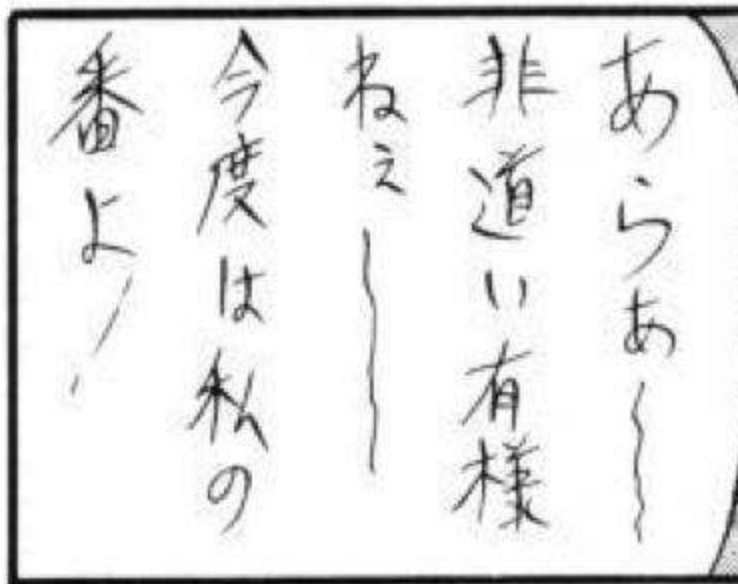 あらぁ〜
非道い有様
ねぇ〜
今度は私の
番よ!